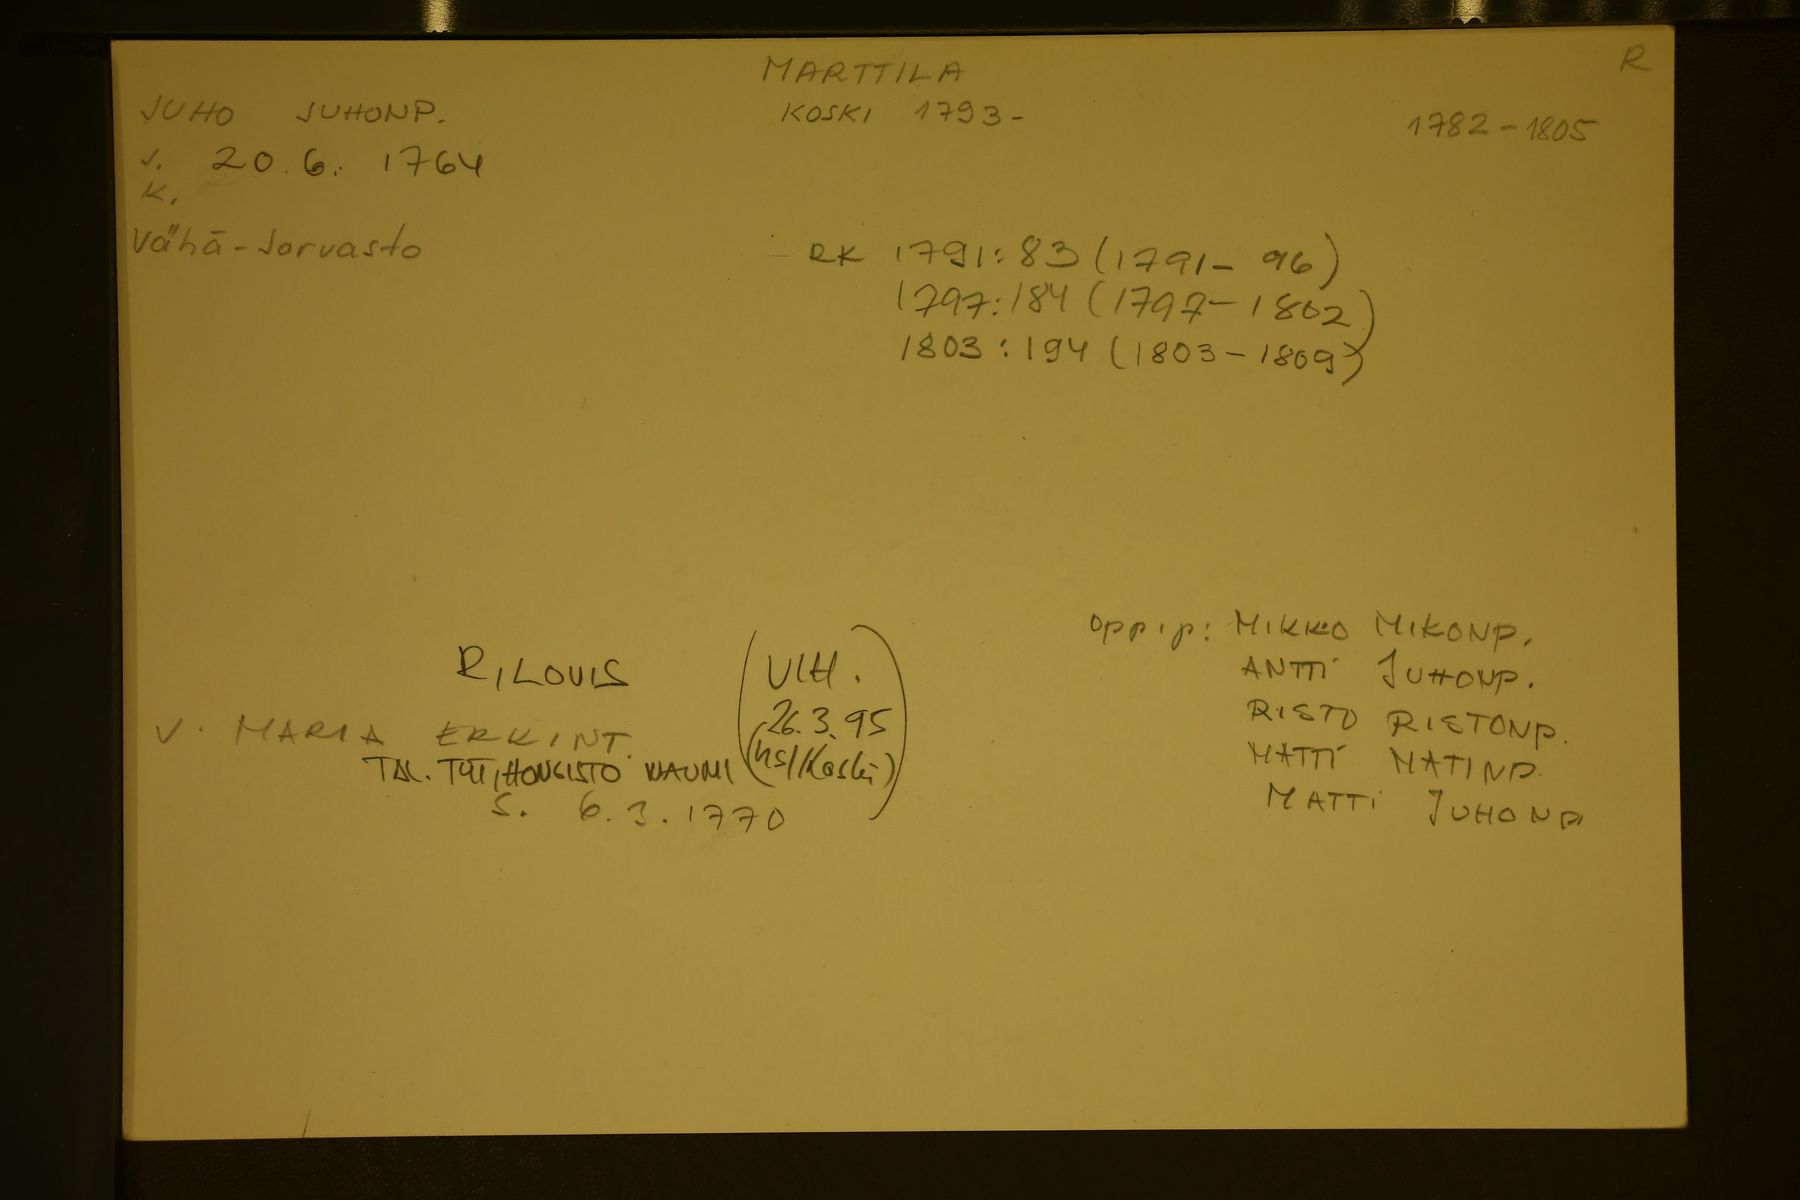 MARTTILA
R
JUHO JUHONP.
KOSKI 1793-
1782-1805
s. 20.6. 1764
K.
Vähä-Sorvasto
RK 1791:83 (1791-96)
1797:184 (1797-1802)
1803:194 (1803-1809)
oppip: MIKKO MIKONP.
ANTTI JUHONP.
RISTO RISTONP.
MATTI MATINP.
MATTI JUHONP
(VIH.
26.3.95
(ksl/Koski)
V. MARIA ERKINT.
TAL. TYT, HONGISTO
S. 6.3.1770